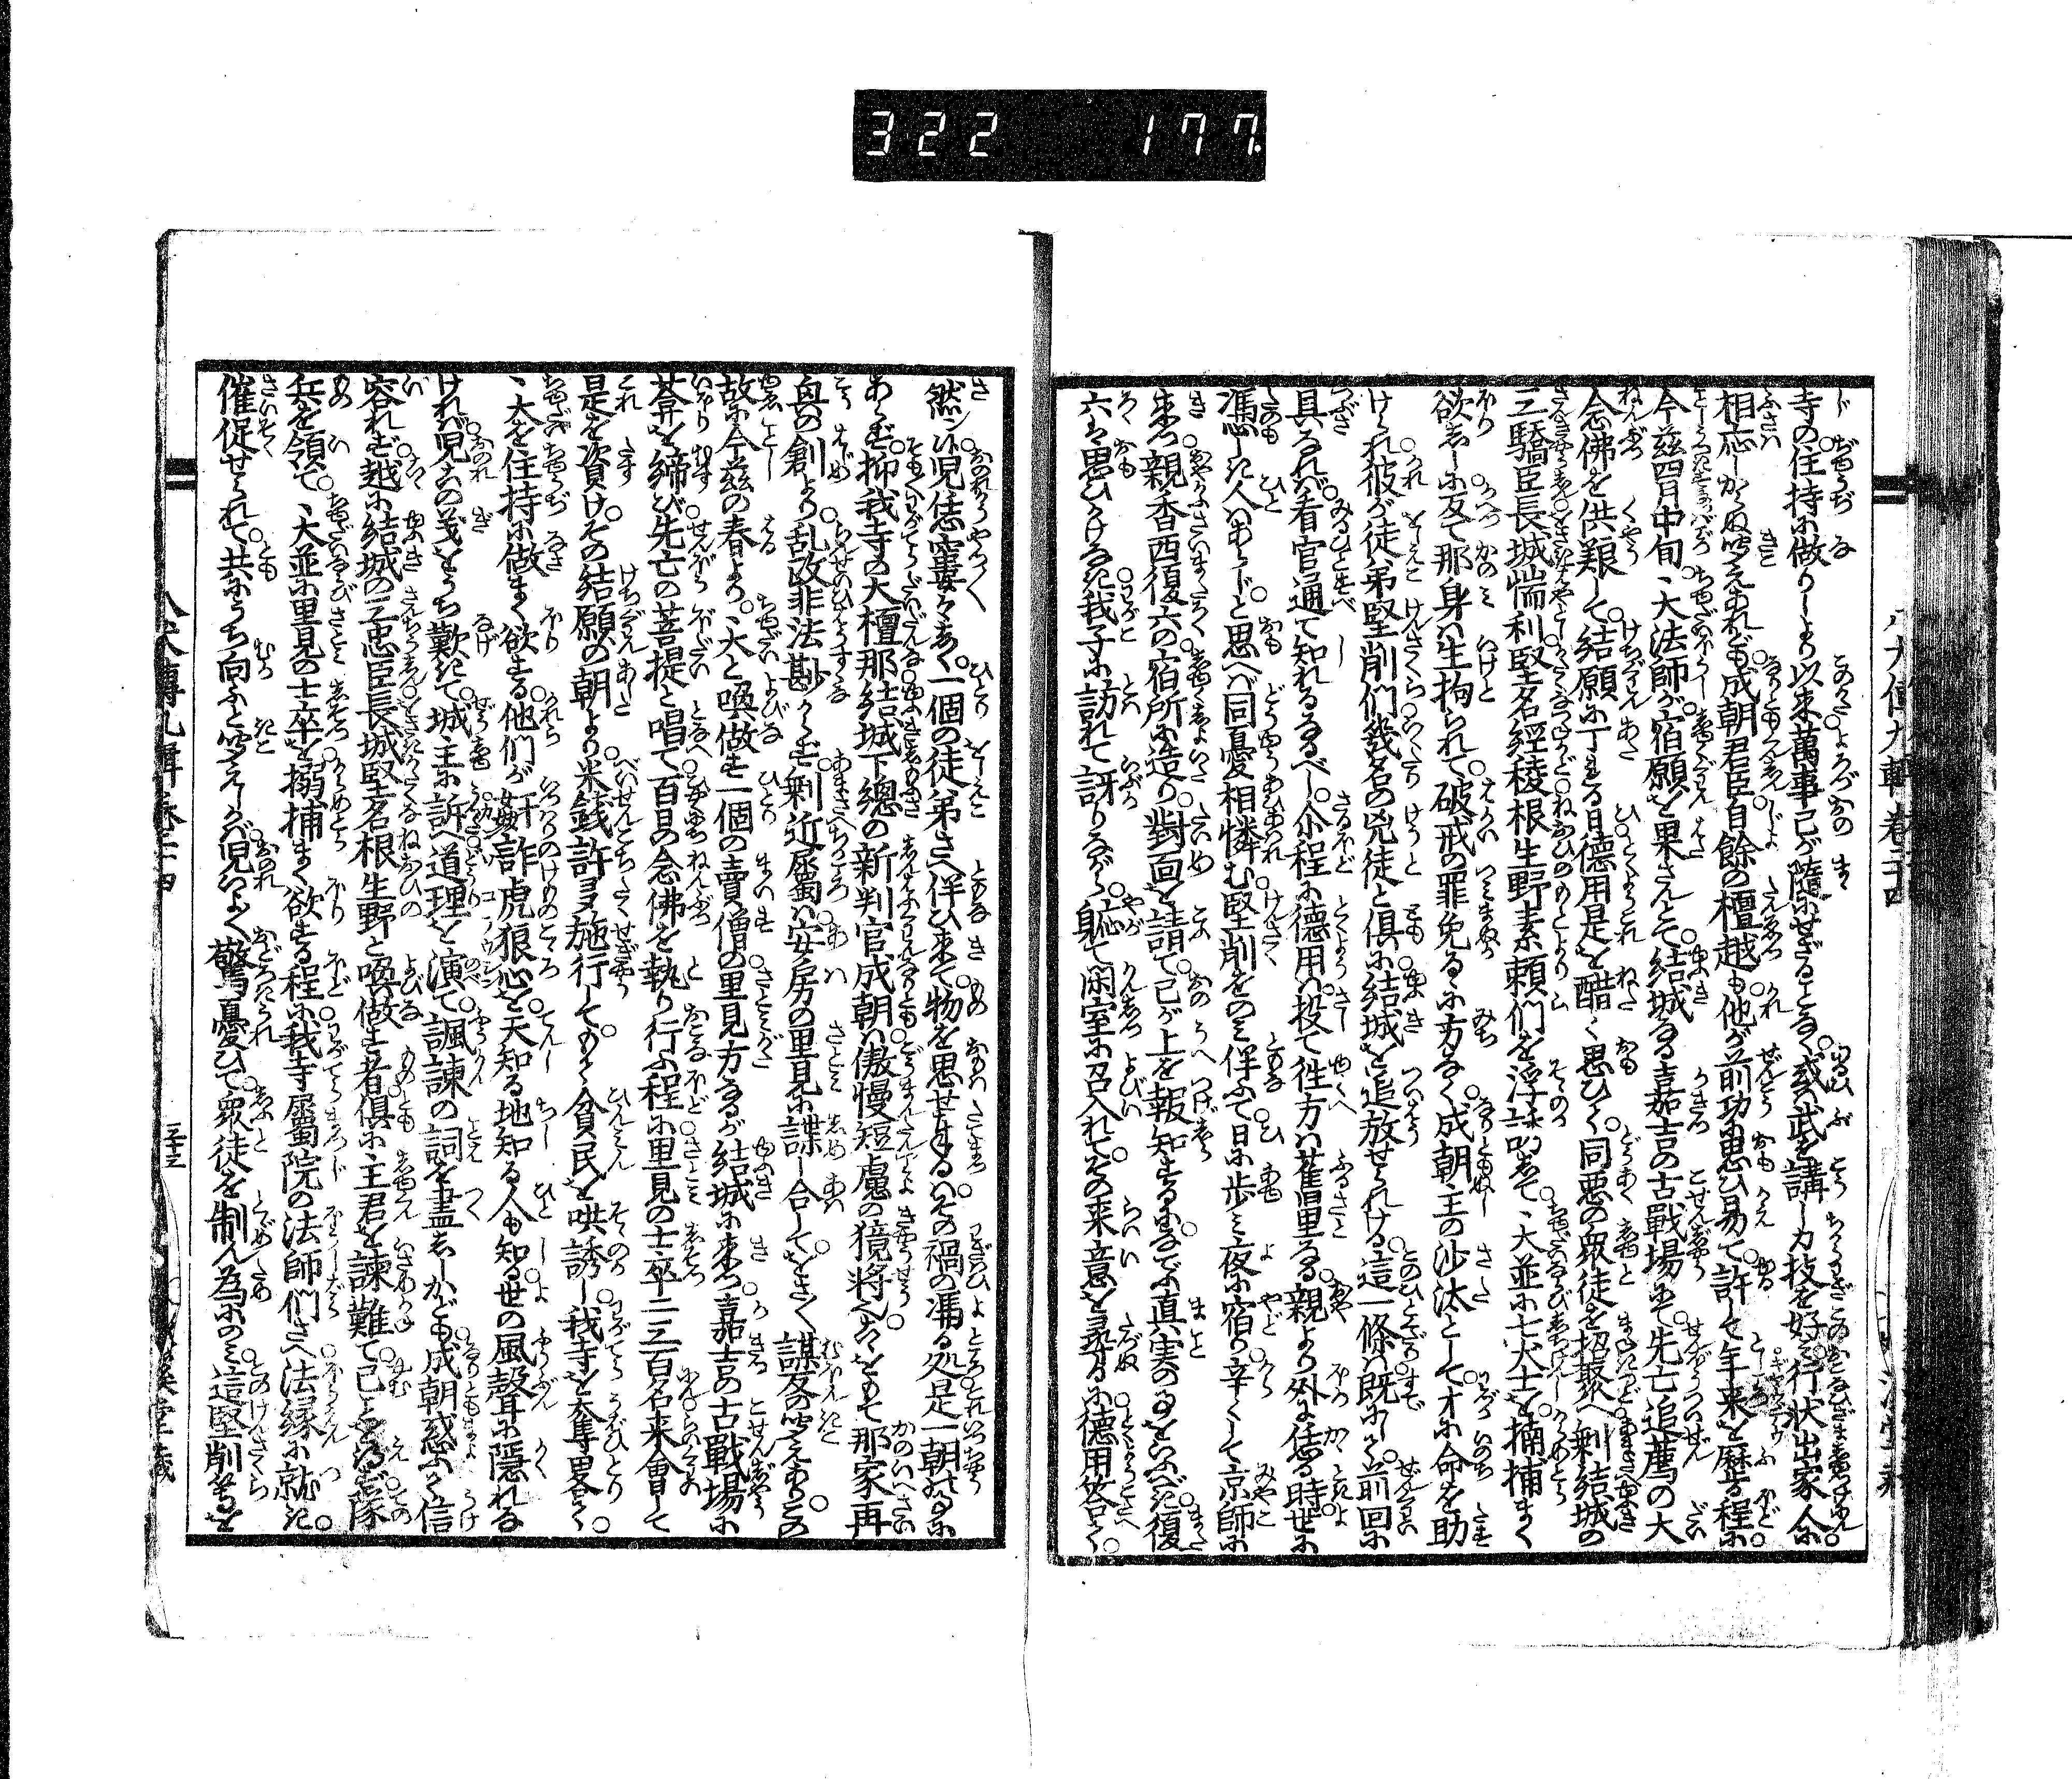 322 177
寺の住持に做りしより以来萬事己が随にせざることなく或は武を講し力技を好み行状出家人に
相応しからぬ聞えあれども成朝君臣自餘の檀越も他が前功に思ひ易て許して年来を歴る程に
今茲四月中旬、大法師が宿願を果さんとて結城なる嘉吉の古戰場にて先亡追薦の大
念佛を供艱して結願に丁れる日徳用是を醋く思ひつゝ同悪の衆徒を招聚へ剰結城の
三驕臣長城惴利堅名経稜根生野素頼們を浮訹して、大並に七犬士を搦捕まく
欲せしに反て那身は生拘られて破戒の罪免るゝに方なく成朝主の沙汰として才に命を助
けられ彼が徒弟堅削們幾名の兇徒と倶に結城を追放せられける這一條は既にして前回に
具なれば看官通て知れるなるべし尒程に徳用は投て徃方は舊里なる親より外に恁る時世に
馮しき人はあらじと思へば同憂相憐む堅削をのみ伴ふて日に歩み夜に宿り辛くして京師に
来つ親香西復六の宿所に造り對面を請て己が上を報知するになでふ真実の事をいふべき復
六は思ひがけなき我子に訪れて訝りながら軈て閑室に召入れてその来意を尋るに徳用答て
然ン候児恁窶々しく一個の徒弟さへ伴ひ来て物を思せまつるはその禍の馮る処是一朝の事に
あらず抑我寺の大檀那結城下總の新判官成朝は傲慢短慮の猿將へなるをもて那家再
興の創より乱政非法尠からず剰近曾は安房の里見に諜し合してをさ〳〵謀反の聞えありこの
故に今茲の春より、大と喚做す一個の賣僧の里見方なるが結城に来つ嘉吉の古戰場に
茶弇を締び先亡の菩提と唱て百日の念佛を執り行ふ程に里見の士卒二三百名来會して
是を資けその結願の朝より米銭許多施行してをさ〳〵貧民を哄誘し我寺を奪畧て
、大を住持に做まく欲する他們が奸詐虎狼心を天知る地知る人も知る世の風聲に隠れな
ければ児この義をうち歎きて城主に訴へ道理を演て諷諫の詞を盡せしかども成朝惑ふて信
容れず越に結城の三忠臣長城堅名根生野と喚做す者倶に主君を諫難て己ことを得ず隊
兵を領て、大並に里見の士卒を搦捕まく欲する程に我寺属院の法師們さへ法縁に就き
催促せられて共にうち向ふと聞えしかば児いたく驚き憂ひて衆徒を制ん為にのみ這堅削等を